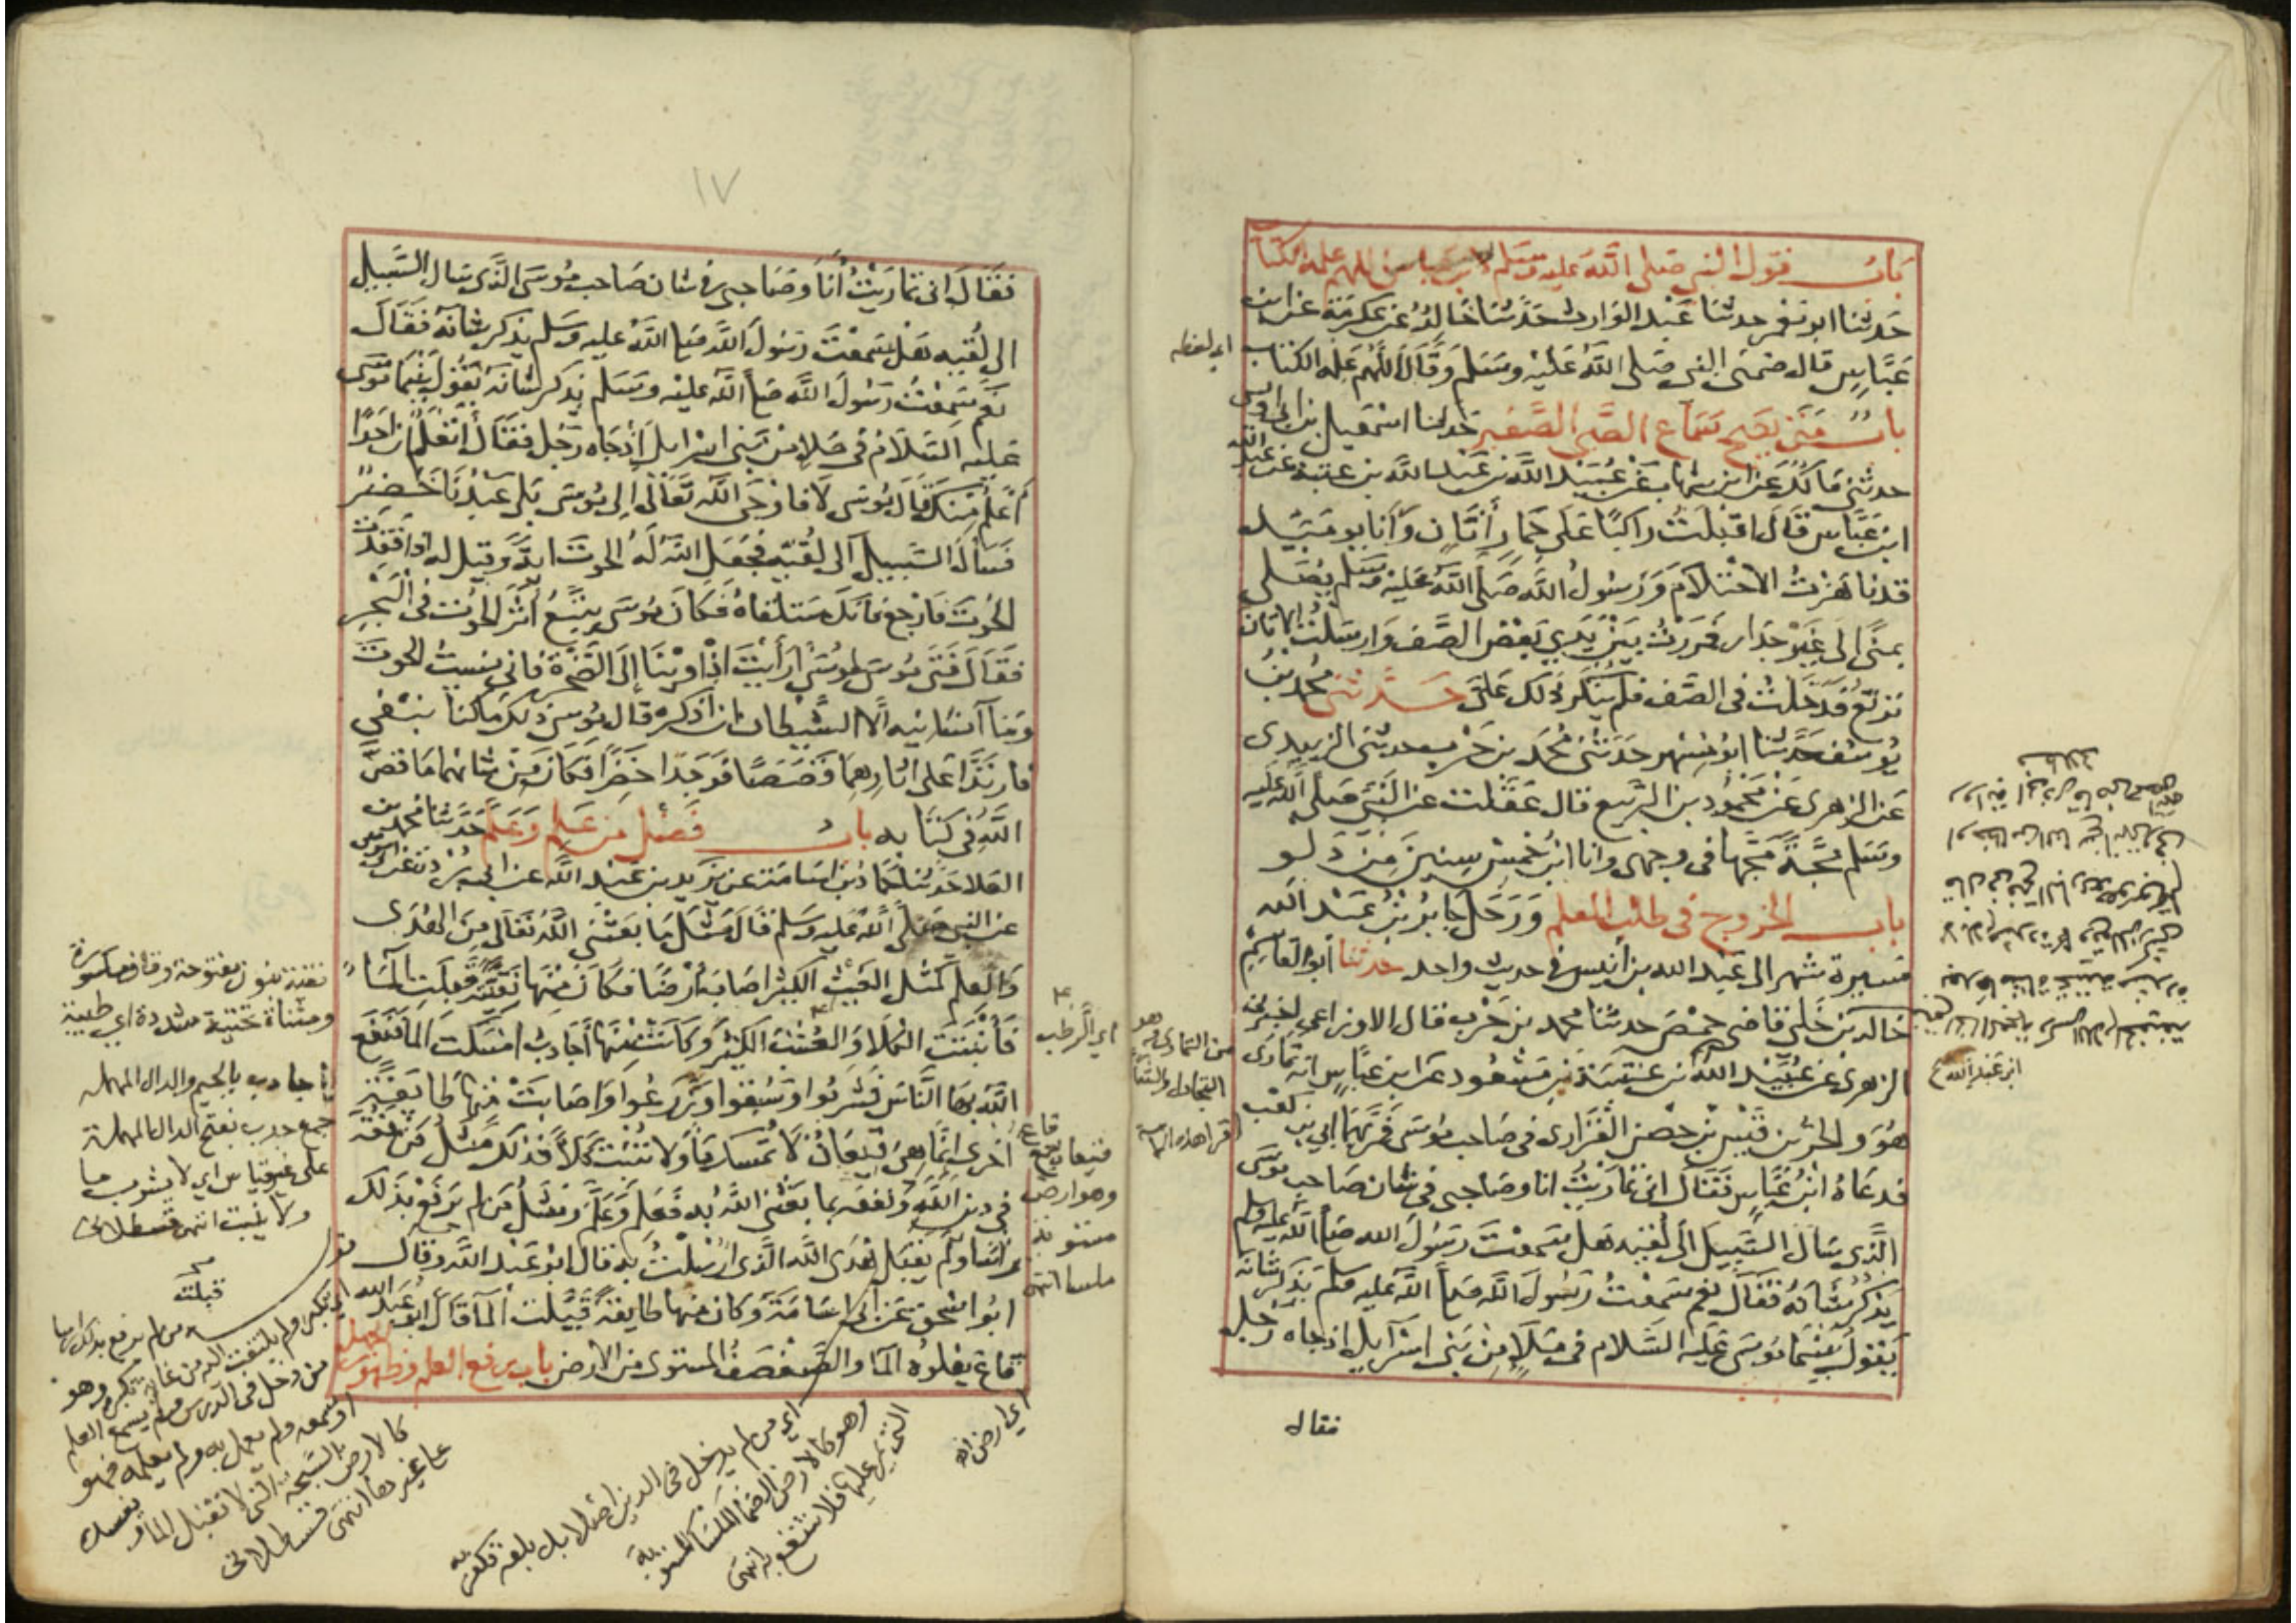 باب قول النبي صلى الله عليه وسلم اللهم علمه الكتاب
حدثنا ابو معمر حدثنا عبد الوارث حدثنا خالد عن عكرمة عن ابن
عباس قال ضمني النبي صلى الله عليه وسلم وقال اللهم علمه الكتاب
باب متى يصح سماع الصبي الصغير حدثنا اسمعيل بن ابي اويس
حدثني مالك عن ابن شهاب عن عبيد الله بن عبد الله بن عتبة عن عبد الله
ابن عباس قال اقبلت راكبا على حمار أتان وأنا يومئيد
قد ناهزت الاحتلام ورسول الله صلى الله عليه وسلم يصلي
بمنى الى غير جدار فمررت بين يدي بعض الصف وارسلت الاتان
ترتع فدخلت في الصف فلم ينكر ذلك علي حدثني محمد بن
يوسف حدثنا ابو مسهر حدثني محمد بن حرب حدثني الزبيدي
عن الزهري عن محمود بن الربيع قال عقلت عن النبي صلى الله عليه
وسلم مجة مجها في وجهي وانا ابن خمس سنين من دلو
باب الخروج في طلب العلم ورحل جابر بن عبد الله
مسيرة شهر الى عبد الله بن انيس في حديث واحد حدثنا أبو القاسم
خالد بن خلي قاضي حمص حدثنا محمد بن حرب قال الاوزاعي اخبرنا
الزهري عن عبيد الله بن عتبة بن مسعود عن ابن عباس انه تمارى
هو والحر بن قيس بن حصن الفزاري في صاحب موسى فمر بهما ابي بن كعب
فدعاه ابن عباس فقال اني تماريت انا وصاحبي في شان صاحب موسى
الذي سال السبيل الى لقيه هل سمعت رسول الله صلى الله عليه وسلم
يذكر شانه فقال نعم سمعت رسول الله صلى الله عليه وسلم يذكر شانه
يقول بينما موسى عليه السلام في ملا من بني اسرآيل اذ جاه رجل
فقال
اي لفظه
ابن عبد الله
من التمادي وهو
١٧
فقال اني تماريت أنا وصاحبي في شان صاحب موسى الذي سال السبيل
الى لقيه هل سمعت رسول الله صلى الله عليه وسلم يذكر شانه فقال
نعم سمعت رسول الله صلى الله عليه وسلم يذكر شانه يقول بينما موسى
عليه السلام في ملا من بني اسرايل إذ جاه رجل فقال أتعلم ان احدا
أعلم منك قال موسى لا فاوحى الله تعالى الى موسى بلى عبدنا خضر
فسأل السبيل الى لقيه فجعل الله له الحوت اية وقيل له اذا فقدت
الحوت فارجع فانك ستلقاه فكان موسى يتبع أثر الحوت في البحر
فقال فتى موسى لموسى ارأيت اذ اوينا الى الصخرة فاني نسيت الحوت
وما أنسانيه الا الشيطان ان اذكره قال موسى ذلك ما كنا نبغي
فارتدا على اثارهما قصصا فوجدا خضرا فكان من شانهما ما قص
الله في كتابه باب فضل من علم وعلم حدثنا محمد بن
العلا حدثنا حماد بن اسامة عن بريد بن عبد الله عن ابي بردة عن ابي موسى
عن النبي صلى الله عليه وسلم قال مثل ما بعثني الله تعالى من الهدى
والعلم كمثل الغيث الكثير اصاب أرضا فكان منها نقية قبلت المآء
فأنبتت الكلا والعشب الكثير وكانت منها أجادب امسكت الما فنفع
الله بها الناس فشربوا وسقوا وزرعوا واصابت منها طايفة
أخرى انما هي قيعان لا تمسك ما ولا تنبت كلا فذلك مثل من فقه
في دين الله ونفعه بما بعثني الله به فعلم وعلم ومثل من لم يرفع بذلك
راسا ولم يقبل هدى الله الذي ارسلت به قال ابو عبد الله وقال
ابو اسحق عن ابي اسامة وكان منها طايفة قيلت المآ قال ابو عبد الله
قاع يعلوه المآ والصفصف المستوي من الارض باب رفع العلم وظهور الجهل
نقية بنون مفتوحة وقاف مكسورة
ومثناة تحتية مشددة اي طيبة
اجادب بالجيم والدال المهملة
جمع جدب بفتح الدال المهملة
على غير قياس اي لا يشرب ما
ولا ينبت انتهى قسطلاني
اي الرطب
قيعان جمع قاع
وهو ارض
مستوية
ملسا انتهى
قبلت
من دخل في الدين ولم يسمع العلم
او سمعه ولم يعمل به ولم يعلمه فهو
كالارض السبخة التي لا تقبل الماء
انتهى قسطلاني
اي من لم يدخل في الدين اصلا بل بلغه فكفر به
وهو كالارض الصما الملسا المستوية
التي يمر عليها فلا تنتفع به انتهى